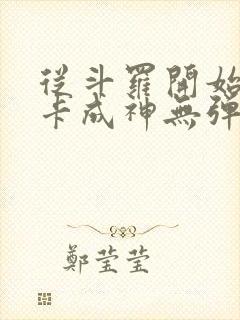 從斗羅開始
卡成神無彈
鄭莹莹